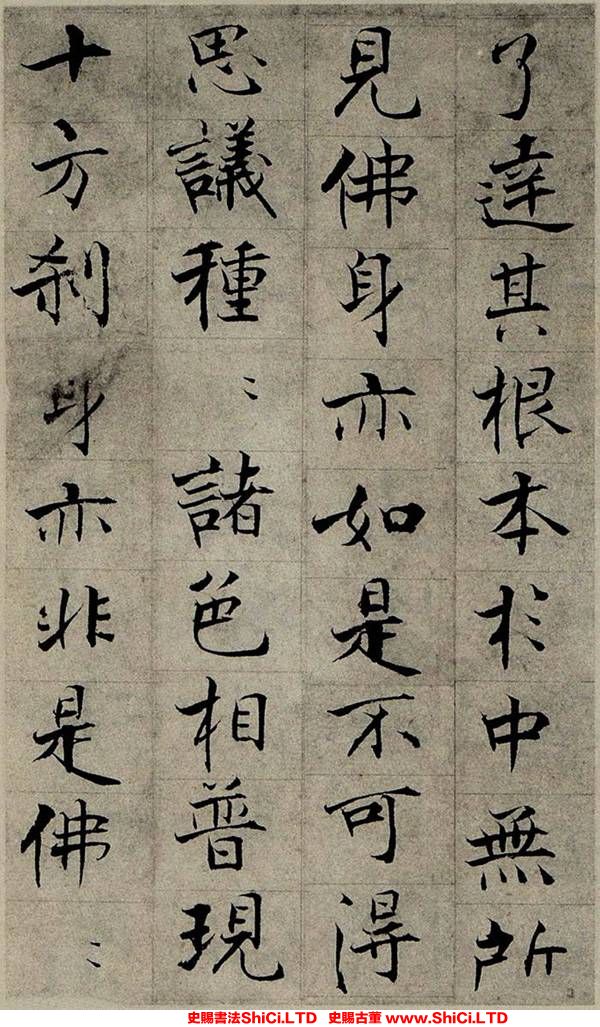 了達其根本於中無所
見佛身亦如是不可得
思議種〻諸色相普現
十方刹身亦非是佛〻
史賜書法ShiCi.LTD 史賜古董 www.ShiCi.LTD